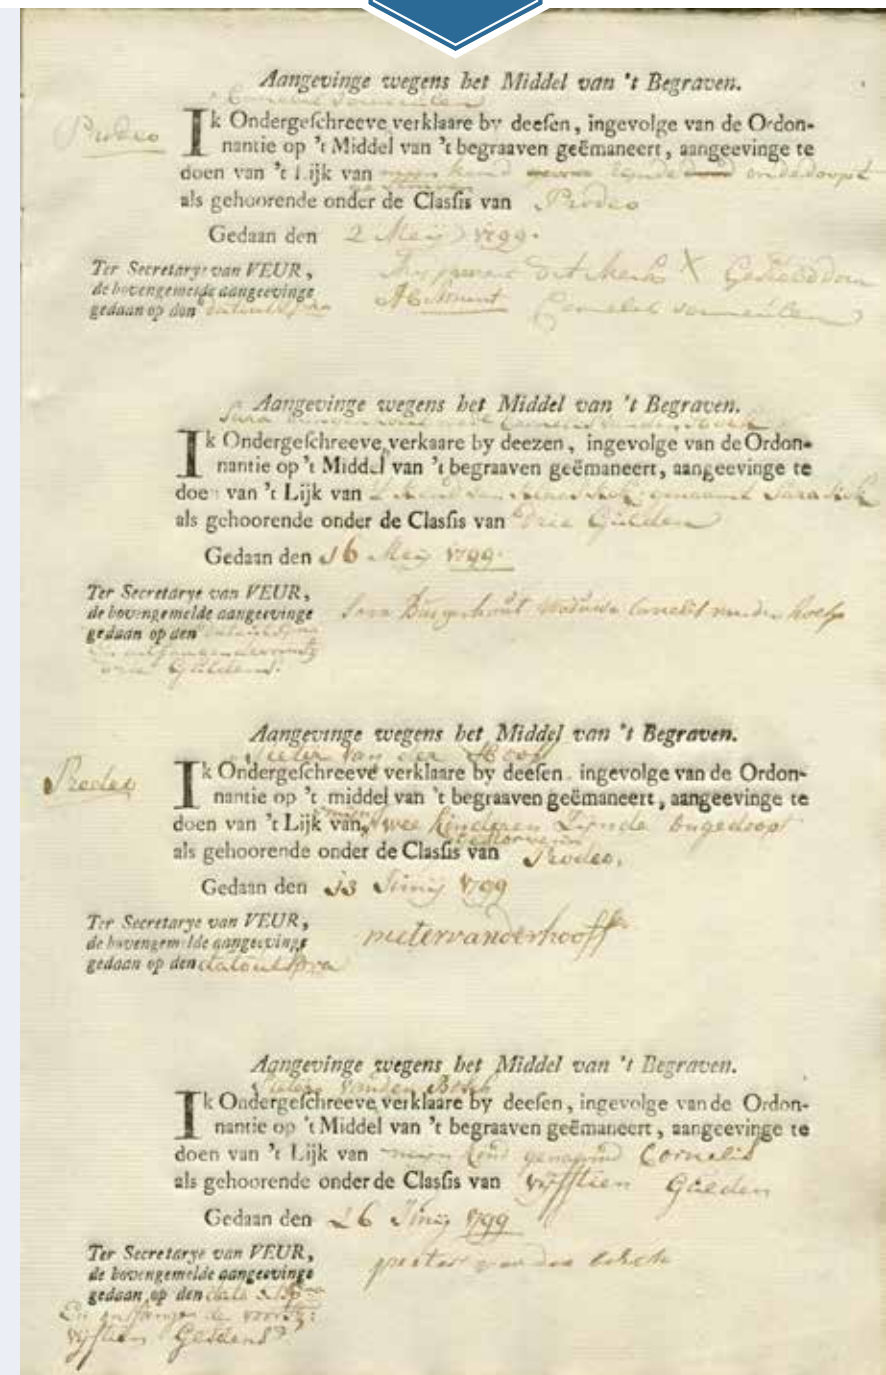 Aangevinge wegens het Middel van 't Begraven.
Cornelis vermeulen
Prodeo
Ik Ondergeschreeve verklaare by deesen, ingevolge van de Ordon-
nantie op 't Middel van 't begraaven geëmaneert, aangeevinge te
doen van 't Lijk van kind zijnde ondedoopt
als gehoorende onder de Classis van Prodeo
Gedaan den 2 Meij 1799.
Ter Secretarye van VEUR,
de bovengemelde aangeevinge
gedaan op den datoutsupra
dit merk X Gesteld door
Cornelis vermeulen
Aangevinge wegens het Middel van 't Begraven.
Sara
Ik Ondergeschreeve verkaare by deezen, ingevolge van de Ordon-
nantie op 't Middel van 't begraaven geëmaneert, aangeevinge te
doen van 't Lijk van kind van genaamt Sara
als gehoorende onder de Classis van drie Gulden
Gedaan den 16 Meij 1799.
Ter Secretarye van VEUR,
de bovengemelde aangeevinge
gedaan op den datoutsupra
drie Guldens.
Sara Burgerhout Weduwe
Aangevinge wegens het Middel van 't Begraven.
Pieter van der Hooff
Prodeo
Ik Ondergeschreeve verklaare by deesen, ingevolge van de Ordon-
nantie op 't middel van 't begraaven geëmaneert, aangeevinge te
doen van 't Lijk van twee kinderen Zijnde ongedoopt
als gehoorende onder de Classis van Prodeo.
Gedaan den 13 Junij 1799
Ter Secretarye van VEUR,
de bovengemelde aangeevinge
gedaan op den datoutsupra
pietervanderhooff
Aangevinge wegens het Middel van 't Begraven.
Pieter van den Bosch
Ik Ondergeschreeve verklaare by deesen, ingevolge van de Ordon-
nantie op 't Middel van 't begraaven geëmaneert, aangeevinge te
doen van 't Lijk van mijn kind genaamd Cornelis
als gehoorende onder de Classis van vijftien Gulden
Gedaan den 26 Junij 1799
Ter Secretarye van VEUR,
de bovengemelde aangeevinge
gedaan op den dato
En ontfangen de voorsz:
vijftien Guldens
pieter van den